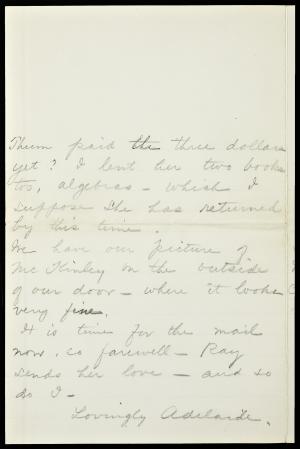 Thum paid the three dollars
yet? I lent her two books
too, algebras - which I
suppose she has returned
by this time.
We have our picture of
McKinley on the outside
of our door - where it looks
very fine.
It is time for the mail
now, so farewell - Ray
sends her love - and so
do I -
Lovingly Adelaide.